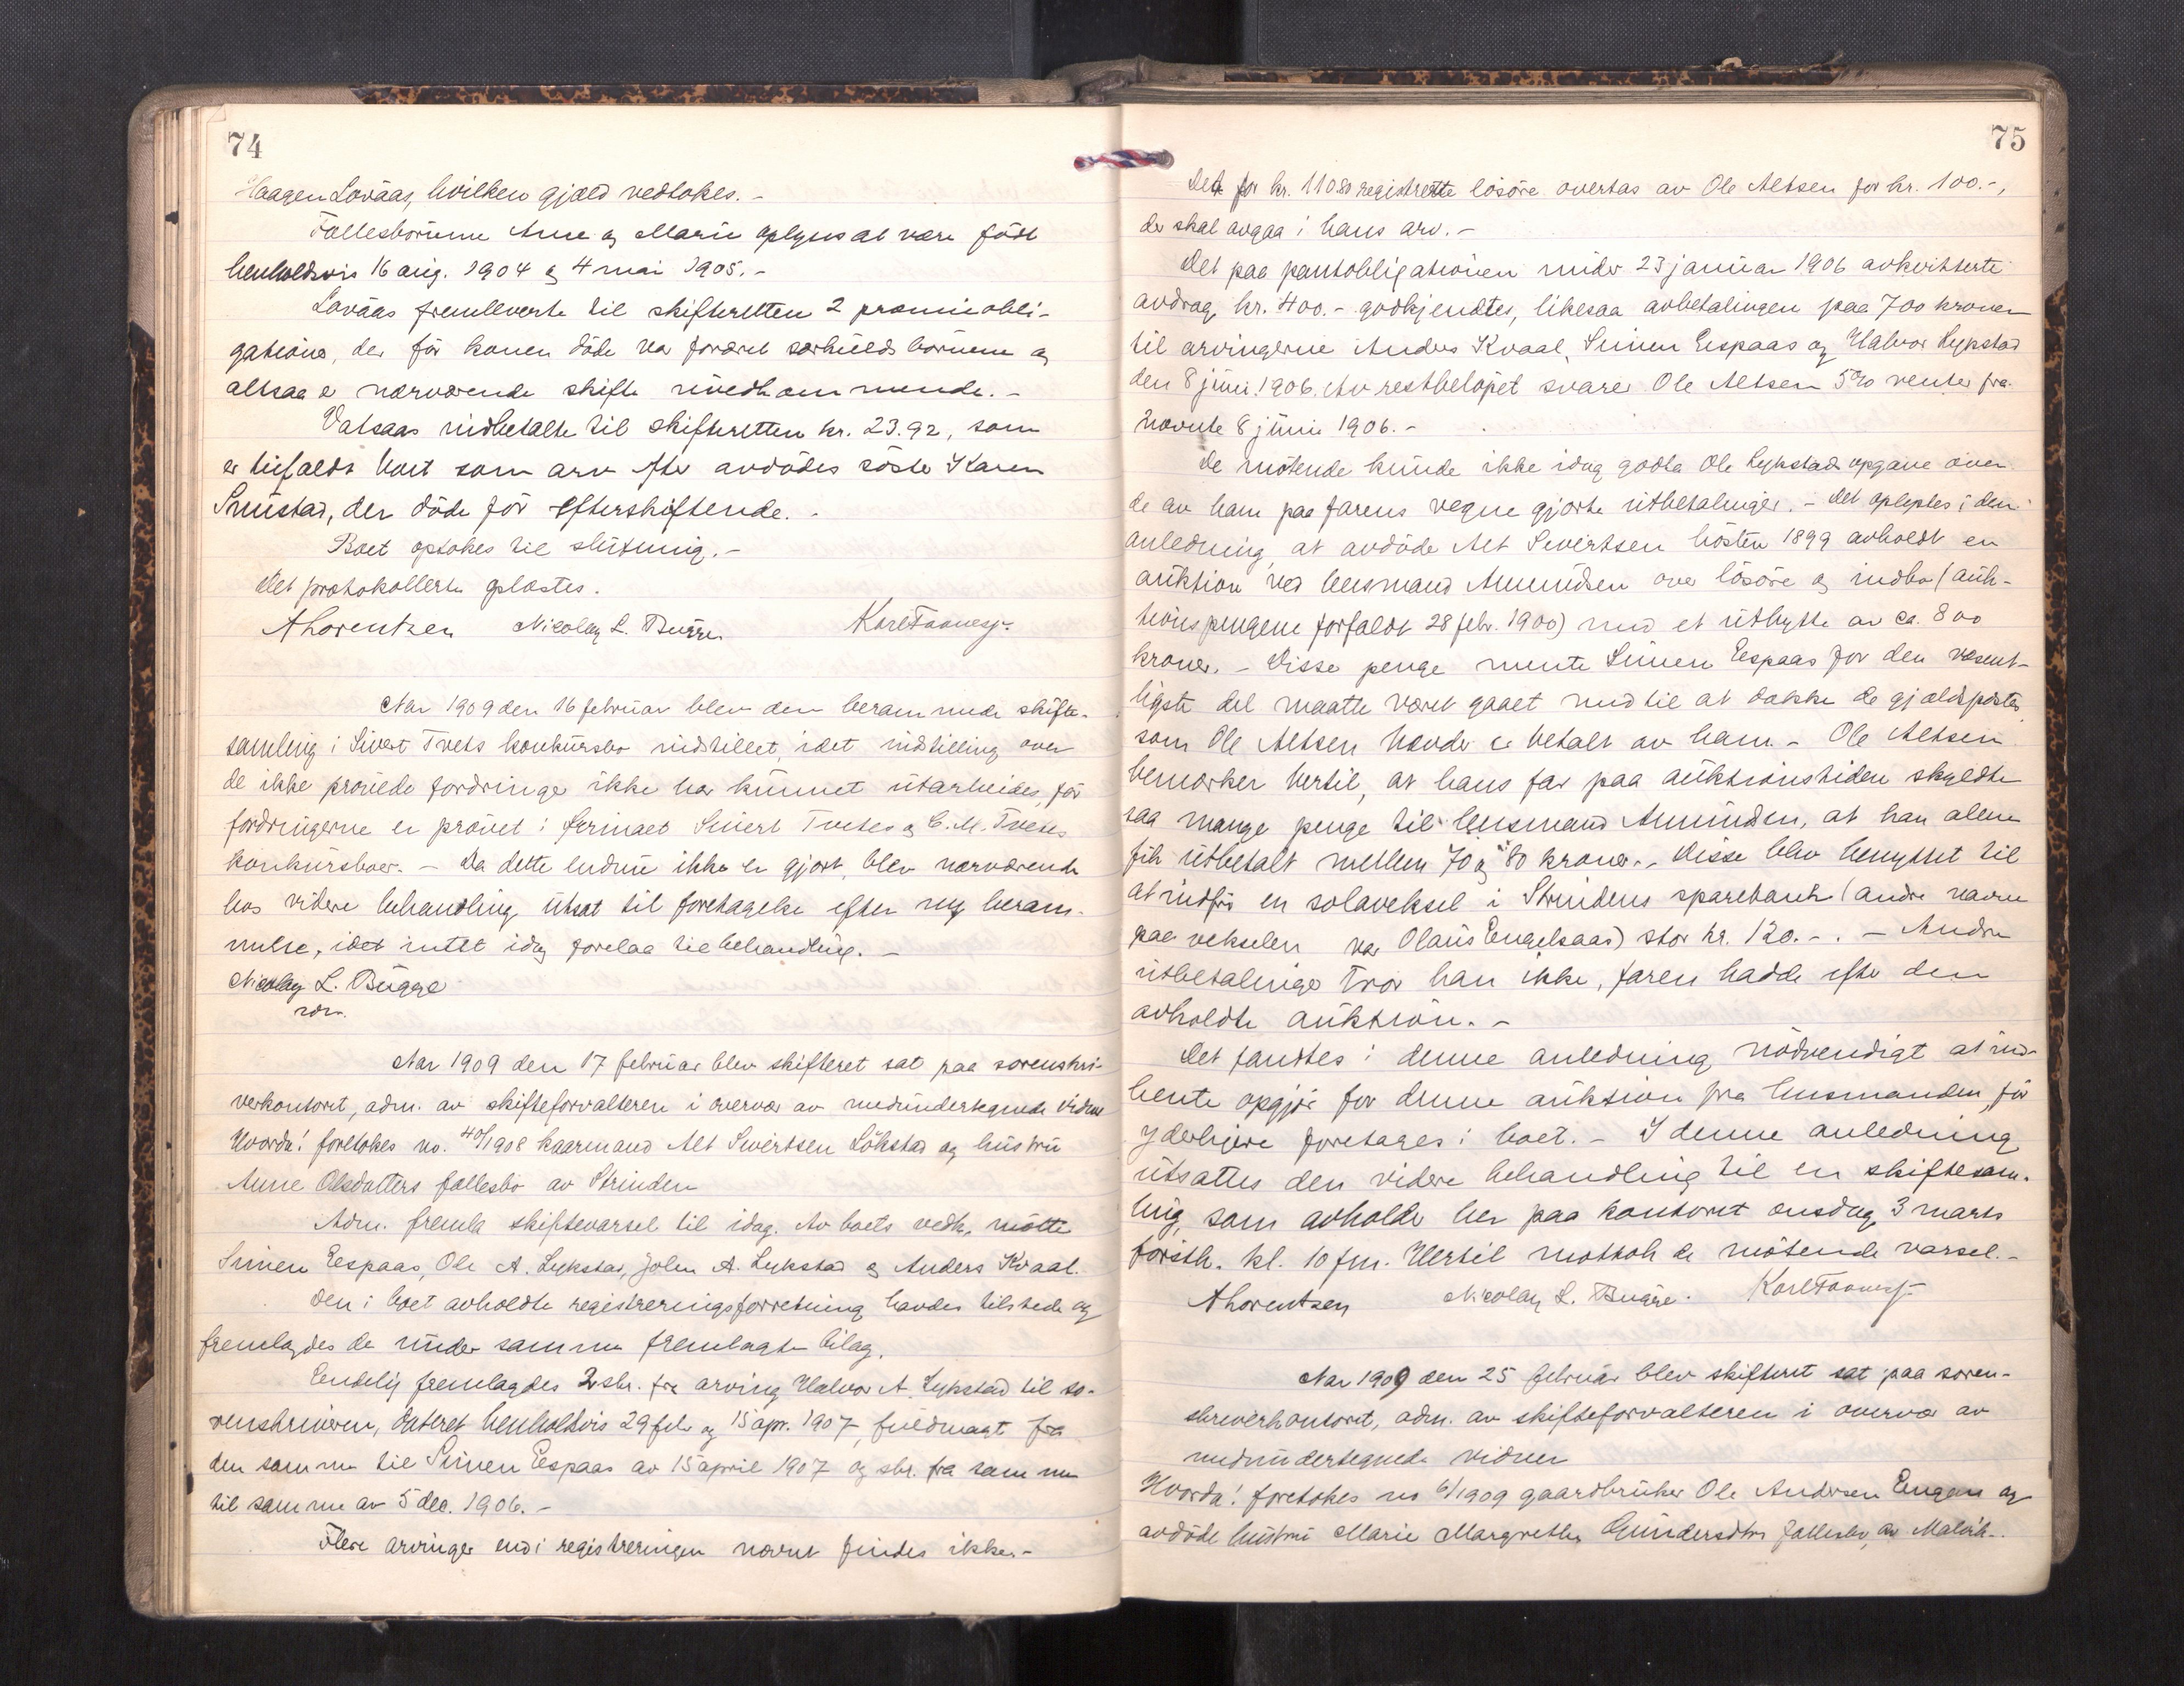 74
Haagen Lovaas, hvilken gjæld vedtokes. -
Fællesbörnene Anne og Marie oplyses at være födt
henholdsvis 16 aug. 1904 og 4 mai 1905. -
Lovaas fremleverte til skifteretten 2 præmieobli-
gationer, der för konen döde var foræret særkuldsbörnene og
altsaa er nærværende skifte uvedkommende. -
Vatsaas indbetalte til skifteretten kr. 23.92, som
er tilfaldt boet som arv efter avdödes söster Karen
Snustad, der döde för efterskiftende. -
Boet optokes til slutning. -
Det protokollerte oplæstes.
A Lorentzen Nicolay L. Bugge Karl
Aar 1909 den 16 februar blev den berammede skifte-
samling i Sivert Tvets konkursbo indstillet, idet indstilling over
de ikke prövede fordringer ikke har kunnet utarbeides, för
fordringerne er prövet i firmaet Sivert Tvetes og C. M. Tvetes
konkursboer. - Da dette endnu ikke er gjort, blev nærværende
bos videre behandling utsat til foretagelse efter ny beram-
melse, idet intet idag forelaa til behandling. -
Nicolay L. Bugge
Aar 1909 den 17 februar blev skifteret sat paa sorenskri-
verkontoret, adm. av skifteforvalteren i overvær av medundertegnede vidner
Hvorda! foretokes no. 40/1908 kaarmand Alt Sivertsen Lökstad og hustru
Anne Olsdatters fællesbo av Strinden
Adm. fremla skiftevarsel til idag. Av boets vedk. mötte
Simen Espaas, Ole A. Lykstad, John A. Lykstad og Anders Kvaal.
Den i boet avholdte registreringsforretning havdes tilstede og
fremlagdes de under samme fremlagte bilag.
Endelig fremlagdes 2 skr. fra arving Halvor A. Lykstad til so-
renskriveren, dateret henholdsvis 29 feb. og 15 apr. 1907, fuldmagt fra
den samme til Simen Espaas av 15 april 1907 og skr. fra samme
til samme av 5 dec. 1906. -
Flere arvinger end i registreringen nævnt findes ikke. -
75
Det for kr. 110.80 registrerte lösöre overtas av Ole Altsen for kr. 100.-,
der skal avgaa i hans arv. -
Det paa pantobligationen under 23 januar 1906 avkvitterte
avdrag, kr. 400.- godkjendtes, likesaa avbetalingen paa 700 kroner
til arvingerne Anders Kvaal, Simen Espaas og Halvor Lykstad
den 8 juni 1906. Av restbelöpet svarer Ole Altsen 5% renter fra
nævnte 8 juni 1906. -
De mötende kunde ikke idag godta Ole Lykstads opgave over
de av ham paa farens vegne gjorte utbetalinger. - Det oplystes i den
anledning, at avdöde Alt Sivertsen hösten 1899 avholdt en
auktion ved lensmand Amundsen over lösöre og indbo (auk-
tionspengene forfaldt 28 febr. 1900) med et utbytte av ca. 800
kroner. - Disse penge mente Simen Espaas for den væsent-
ligste del maatte været gaaet med til at dække de gjældsposter
som Ole Altsen hævder er betalt av ham. - Ole Altsen
bemærker hertil, at hans far paa auktionstiden skyldte
saa mange penge til lensmand Amundsen, at han alene
fik utbetalt mellem 70 og 80 kroner. - Disse blev benyttet til
at indfri en solaveksel i Strindens sparebank (andre navne
paa vekselen var Olaus Engelsaas) stor kr. 120.-. - Andre
utbetalinger tror han ikke, faren hadde efter den
avholdte auktion. -
Det fandtes i denne anledning nödvendigt at ind-
hente opgjör for denne auktion fra lensmanden, för
yderligere foretages i boet. - I denne anledning
utsattes den videre behandling til en skiftesam-
ling, som avholdes her paa kontoret onsdag 3 marts
förstk. kl. 10 fm. Hertil mottok de mötende varsel. -
A Lorentzen Nicolay L. Bugge. Karl
Aar 1909 den 25 februar blev skifteret sat paa soren-
skriverkontoret, adm. av skifteforvalteren i overvær av
medundertegnede vidner
Hvorda! foretokes no 6/1909 gaardbruker Ole Andersen Engen og
avdöde hustru Marie Margrethe Gundersdtrs fællesbo, av Malvik.